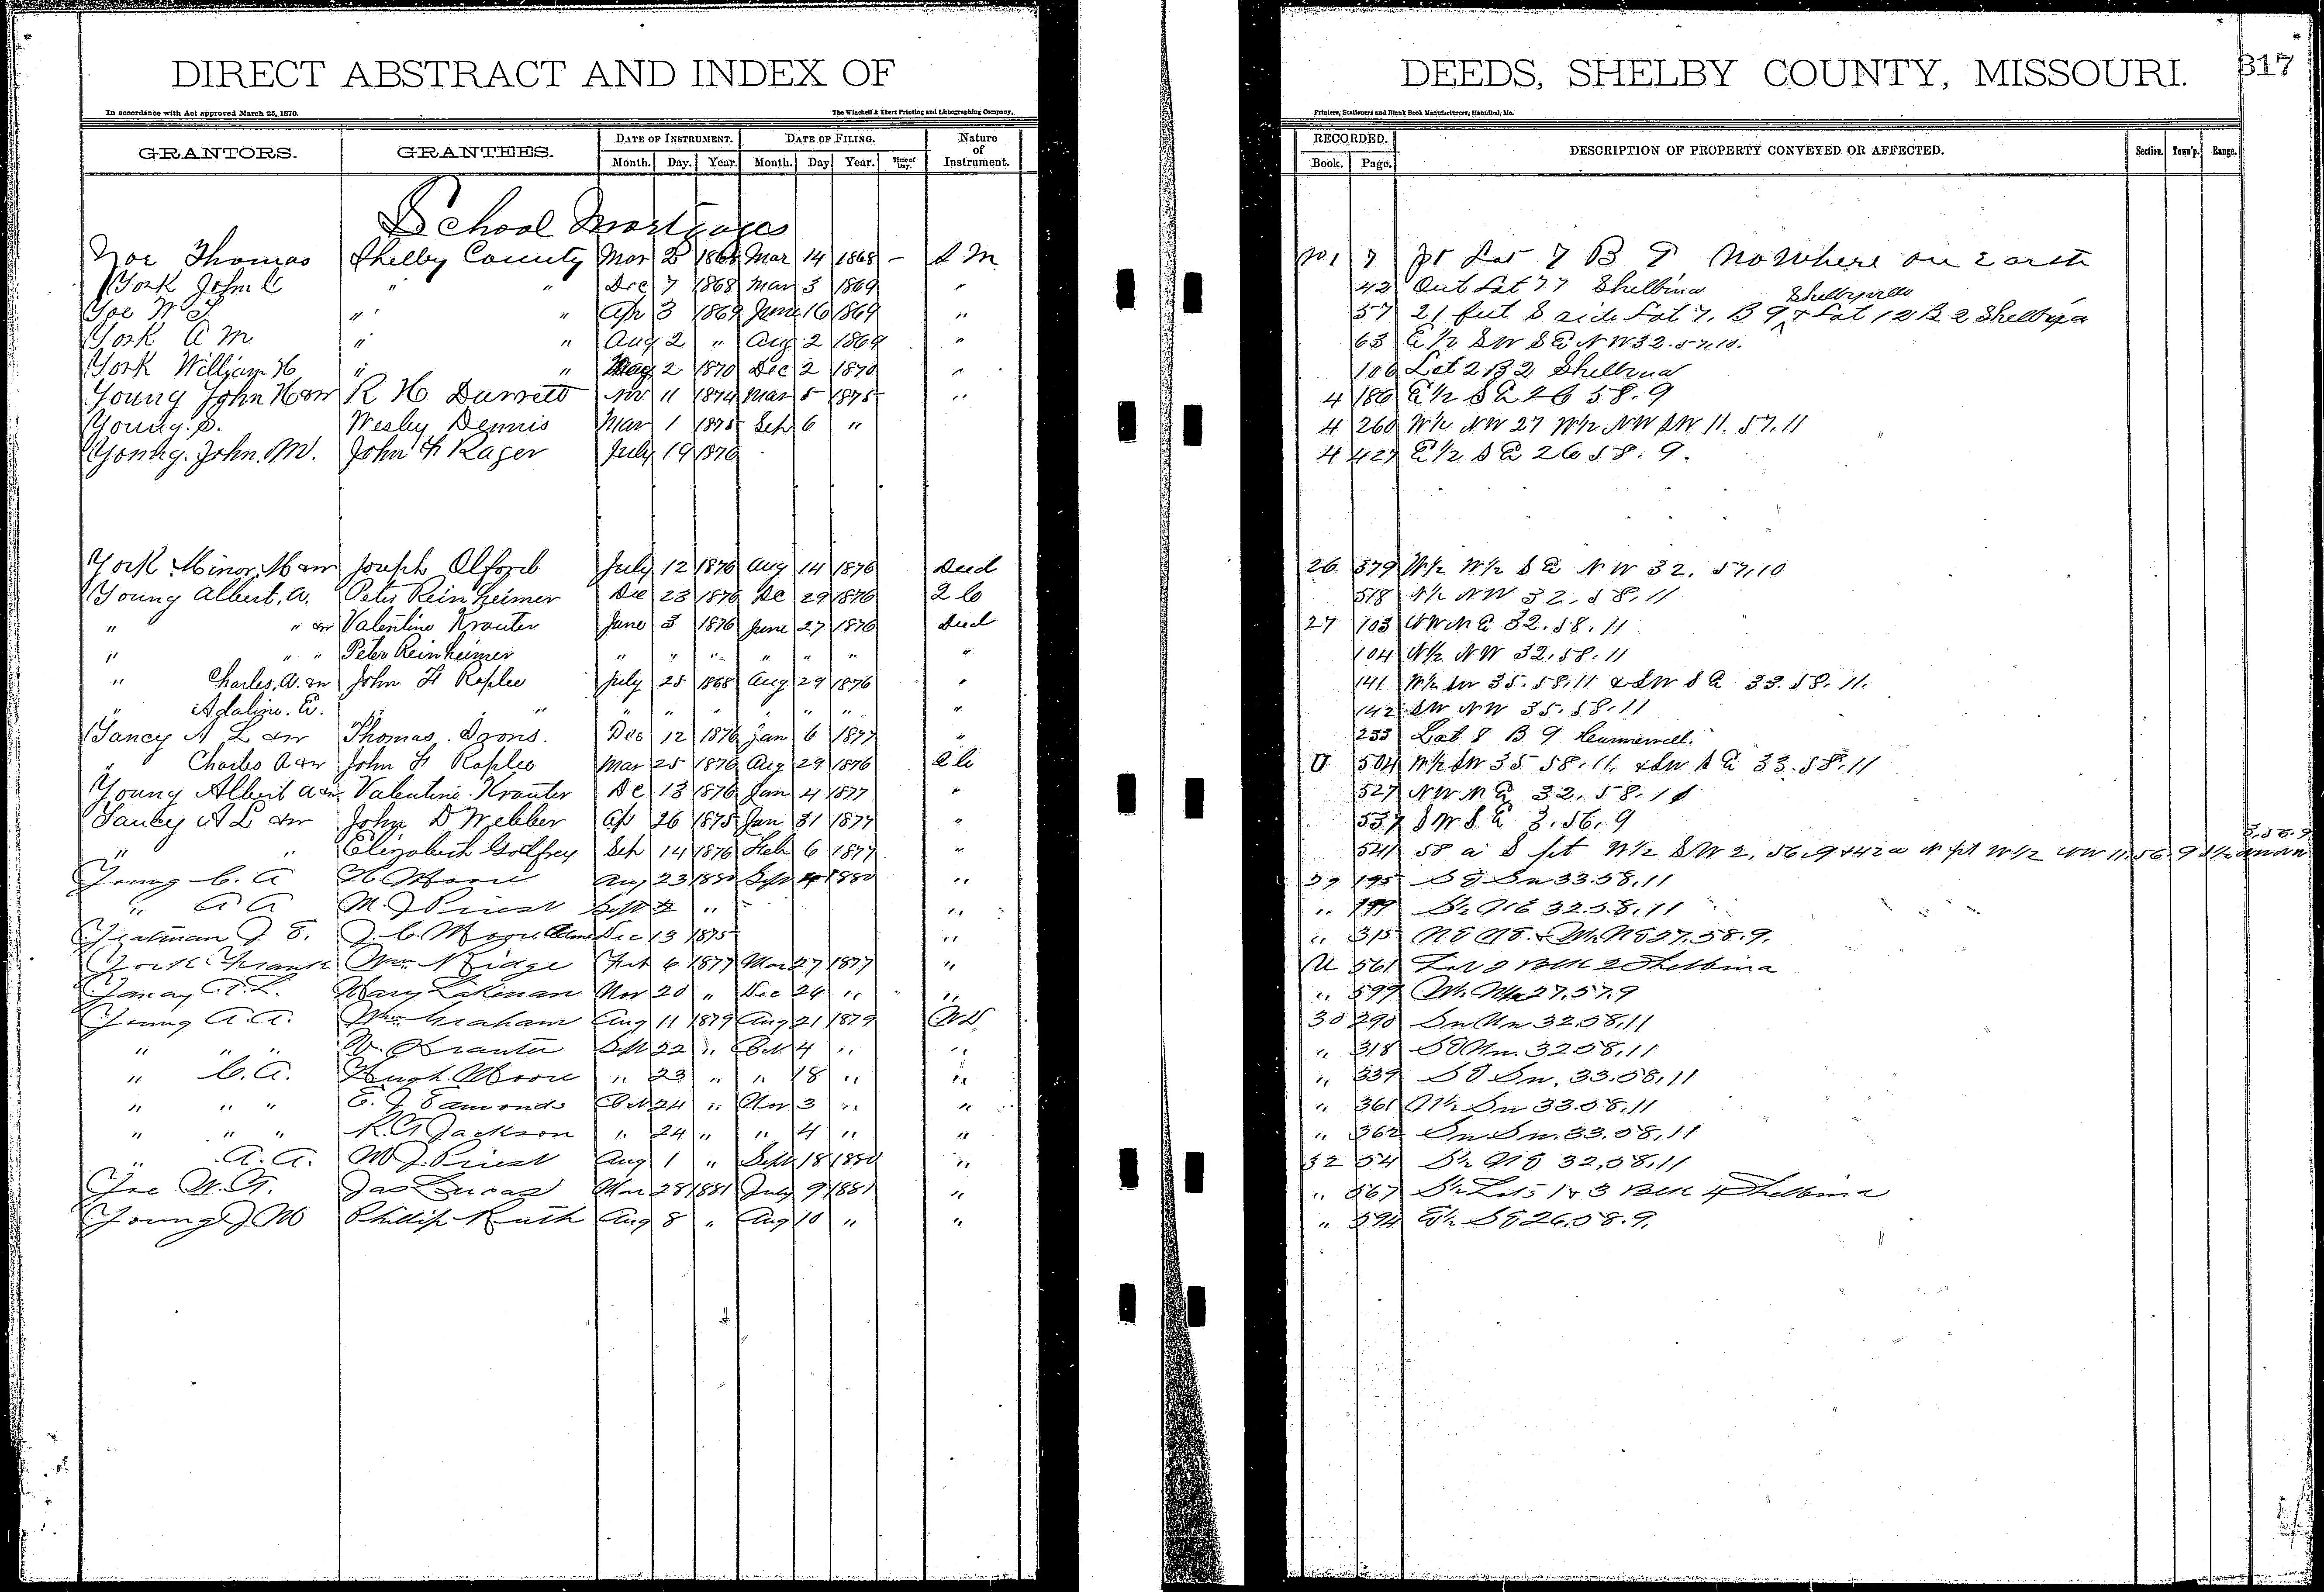 DIRECT ABSTRACT AND INDEX OF DEEDS, SHELBY COUNTY, MISSOURI. 317
In accordance with Act approved March 25, 1870. The Winchell & Ebert Printing and Lithographing Company, Printers, Stationers and Blank Book Manufacturers, Hannibal, Mo.
GRANTORS. GRANTEES. DATE OF INSTRUMENT. DATE OF FILING. Nature of Instrument. RECORDED. DESCRIPTION OF PROPERTY CONVEYED OR AFFECTED. Section. Town'p. Range.
Month. Day. Year. Month. Day Year. Time of Day. Book. Page.
School Mortgages
Yoe Thomas Shelby County Mar 1868 Mar 14 1868 - S M No 1 7 pt Lot 7 B No Where on Earth
York John C " " Dec 7 1868 Mar 3 1869 " 42 Out Lot 77 Shelbina
Yoe W S " " Apr 3 1869 June 16 1869 " 57 21 feet S side Lot 7, B 9 Shelbyville & Lot 12 B 2 Shelbina
York A M " " Aug 2 " Aug 2 1869 " 63 E 1/2 SW SE NW 32.57.10.
York William H " " May 2 1870 Dec 2 1870 " 106 Lot 2 B 2 Shelbina
Young John H &w R H Durrett Nov 11 1874 Mar 5 1875 " 4 186 E 1/2 SE 26 58.9
Young. S. Wesley Dennis Mar 1 1875 Sep 6 " 4 260 W 1/2 NW 27 W 1/2 NW SW 11. 57.11
Young. John. M. John F Rager July 19 1876 4 427 E 1/2 SE 26 58. 9.
York Minor, M &w Joseph Alford July 12 1876 Aug 14 1876 Deed 26 379 W 1/2 W 1/2 SE NW 32. 57.10
Young Albert, A. Peter Reinheimer Dec 23 1876 De 29 1876 Q C 518 N 1/2 NW 32.58.11
" " &w Valentine Krauter June 3 1876 June 27 1876 Deed 27 103 NW NE 32.58.11
" " " Peter Reinheimer " " " " " " " 104 N 1/2 NW 32.58.11
" Charles, A. &w John F Raplee July 25 1868 Aug 29 1876 " 141 W 1/2 SW 35.58.11 & SW SE 33.58.11.
" Adaline. E. " " " " " " " " " 142 SW NW 35.58.11
Yancy A L &w Thomas Irons. Dec 12 1876 Jan 6 1877 " 233 Lot 8 B 9 Hunnewell.
" Charles A &w John F Raplee Mar 25 1876 Aug 29 1876 Q C U 504 W 1/2 SW 35 58.11, & SW SE 33.58.11
Young Albert A &w Valentine Krauter De 13 1876 Jan 4 1877 " 527 NW NE 32.58.11
Yancy A L &w John D Webber Ap 26 1875 Jan 31 1877 " 537 SW SE 3.56.9
" " Elizabeth Godfrey Sep 14 1876 Feb 6 1877 " 541 58 a S pt W 1/2 SW 2, 56.9 & 42 a N pt W 1/2 NW 11.56.9
Young C. A H. Moore Aug 23 1880 Sept 4 1880 " 29 195 SE SW 33.58.11
" A A M. J Priest Sept " " " 199 S 1/2 NE 32.58.11
Yeatman J. E. J. C. Moore Dec 13 1875 " " 315 NE NE. & W 1/2 NE 27.58.9.
York Frank Wm Ridge Feb 6 1877 Mar 27 1877 " U 561 Lot 2 Blk 2 Shelbina
Yancy A. L. Mary Lakenan Nov 20 " Dec 24 " " " 599 W 1/2 NW 27.57.9
Young A. A. Wm Graham Aug 11 1879 Aug 21 1879 W D 30 290 SW NW 32.58.11
" " " V. Krauter Sept 22 " Oct 4 " " " 318 SE NW. 32 58.11
" C. A. Hugh Moore " 23 " " 18 " " " 339 SE SW. 33.58.11
" " " E. J Edmonds Oct 24 " Nov 3 " " " 361 N 1/2 SW 33.58.11
" " " R. A Jackson " 24 " " 4 " " " 362 SW SW. 33.58.11
" A. A. M J Priest Aug 1 " Sept 18 1880 " 32 54 S 1/2 NE 32.58.11
Yoe W. S. Jas Lucas Mar 28 1881 July 9 1881 " " 567 S 1/2 Lots 1 & 3 Blk 4 Shelbina
Young J M Phillip Ruth Aug 8 " Aug 10 " " " 594 E 1/2 SE 26.58.9.